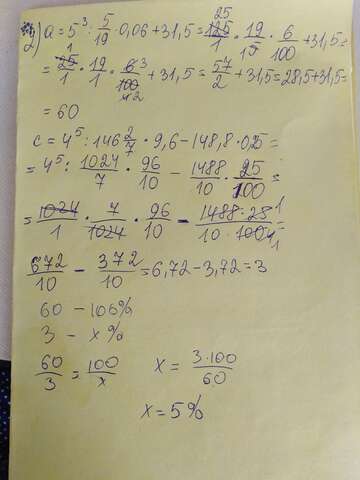 2) a = 5³ : 5/19 · 0,06 + 31,5 = 125/1 · 19/5 · 6/100 + 31,5 =
25
= 25/1 · 19/1 · 6/100 + 31,5 = 57/2 + 31,5 = 28,5 + 31,5 =
= 60
c = 4⁵ : 146 2/7 · 9,6 - 148,8 · 0,25 =
= 4⁵ : 1024/7 · 96/10 - 1488/10 · 25/100 =
= 1024/1 · 7/1024 · 96/10 - 1488 · 25/10 · 100 =
672/10 - 372/10 = 6,72 - 3,72 = 3
60 - 100%
3 - x%
60/3 = 100/x x = 3·100/60
x = 5%